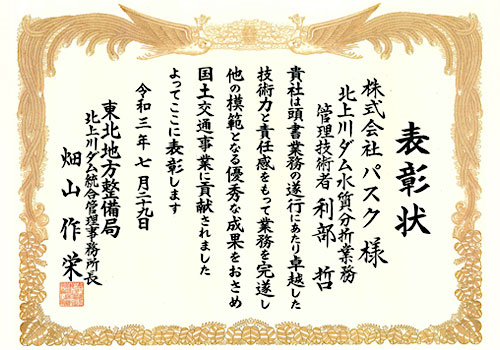 表彰状
株式会社パスク様
北上川ダム水質分析業務
管理技術者 利部 哲
貴社は頭書業務の遂行にあたり卓越した
技術力と責任感をもって業務を完遂し
他の模範となる優秀な成果をおさめ
国土交通事業に貢献されました
よってここに表彰します
令和三年七月二九日
東北地方整備局
北上川ダム統合管理事務所長
畑山作栄